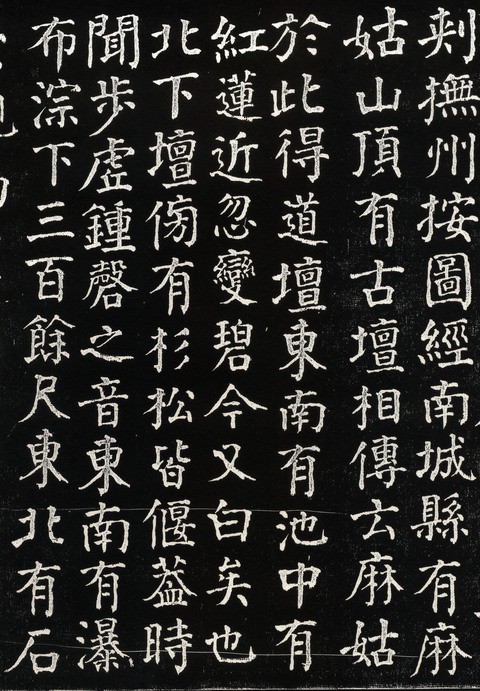 刺撫州按圖經南城縣有麻
姑山頂有古壇相傳云麻姑
於此得道壇東南有池中有
紅蓮近忽變碧今又白矣也
北下壇傍有杉松皆偃葢時
聞步虛鍾磬之音東南有瀑
布淙下三百餘尺東北有石